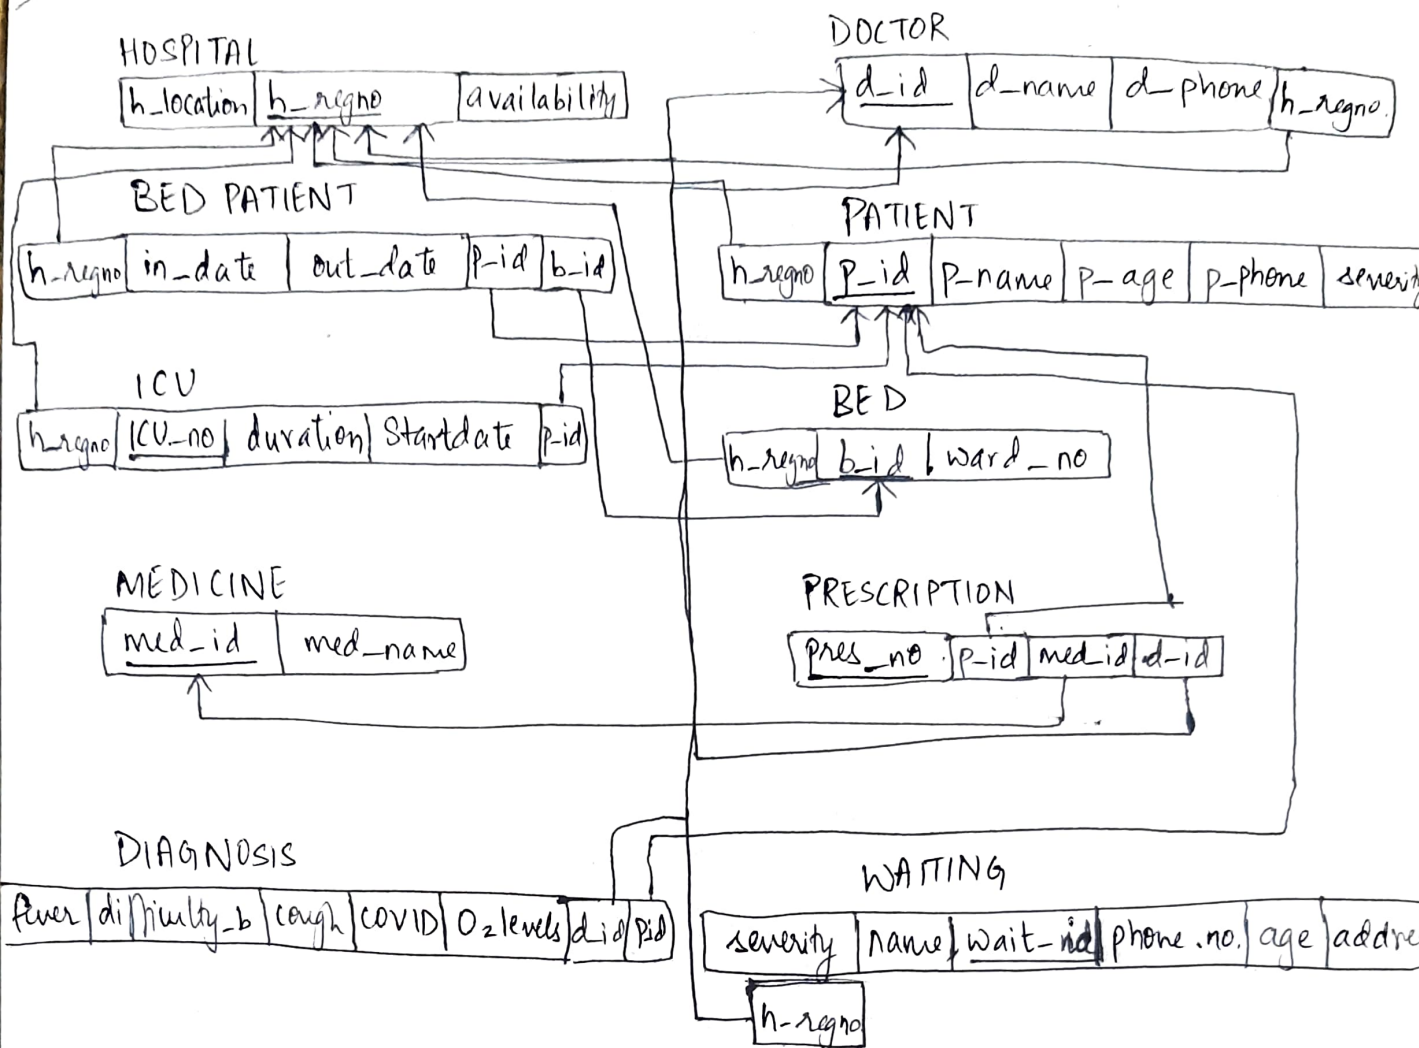 HOSPITAL
h_location h_regno availability
DOCTOR
d_id d_name d_phone h_regno.
BED PATIENT
h_regno in_date out_date p-id b_id
PATIENT
h_regno p_id p-name p-age p-phone severity
ICU
h_regno ICU_no duration Startdate p-id
BED
h_regno b_id ward_no
MEDICINE
med_id med_name
PRESCRIPTION
pres_no p-id med_id d-id
DIAGNOSIS
fever difficulty_b cough COVID O2 levels d_id pid
WAITING
severity name wait_id phone.no. age addre
h-regno